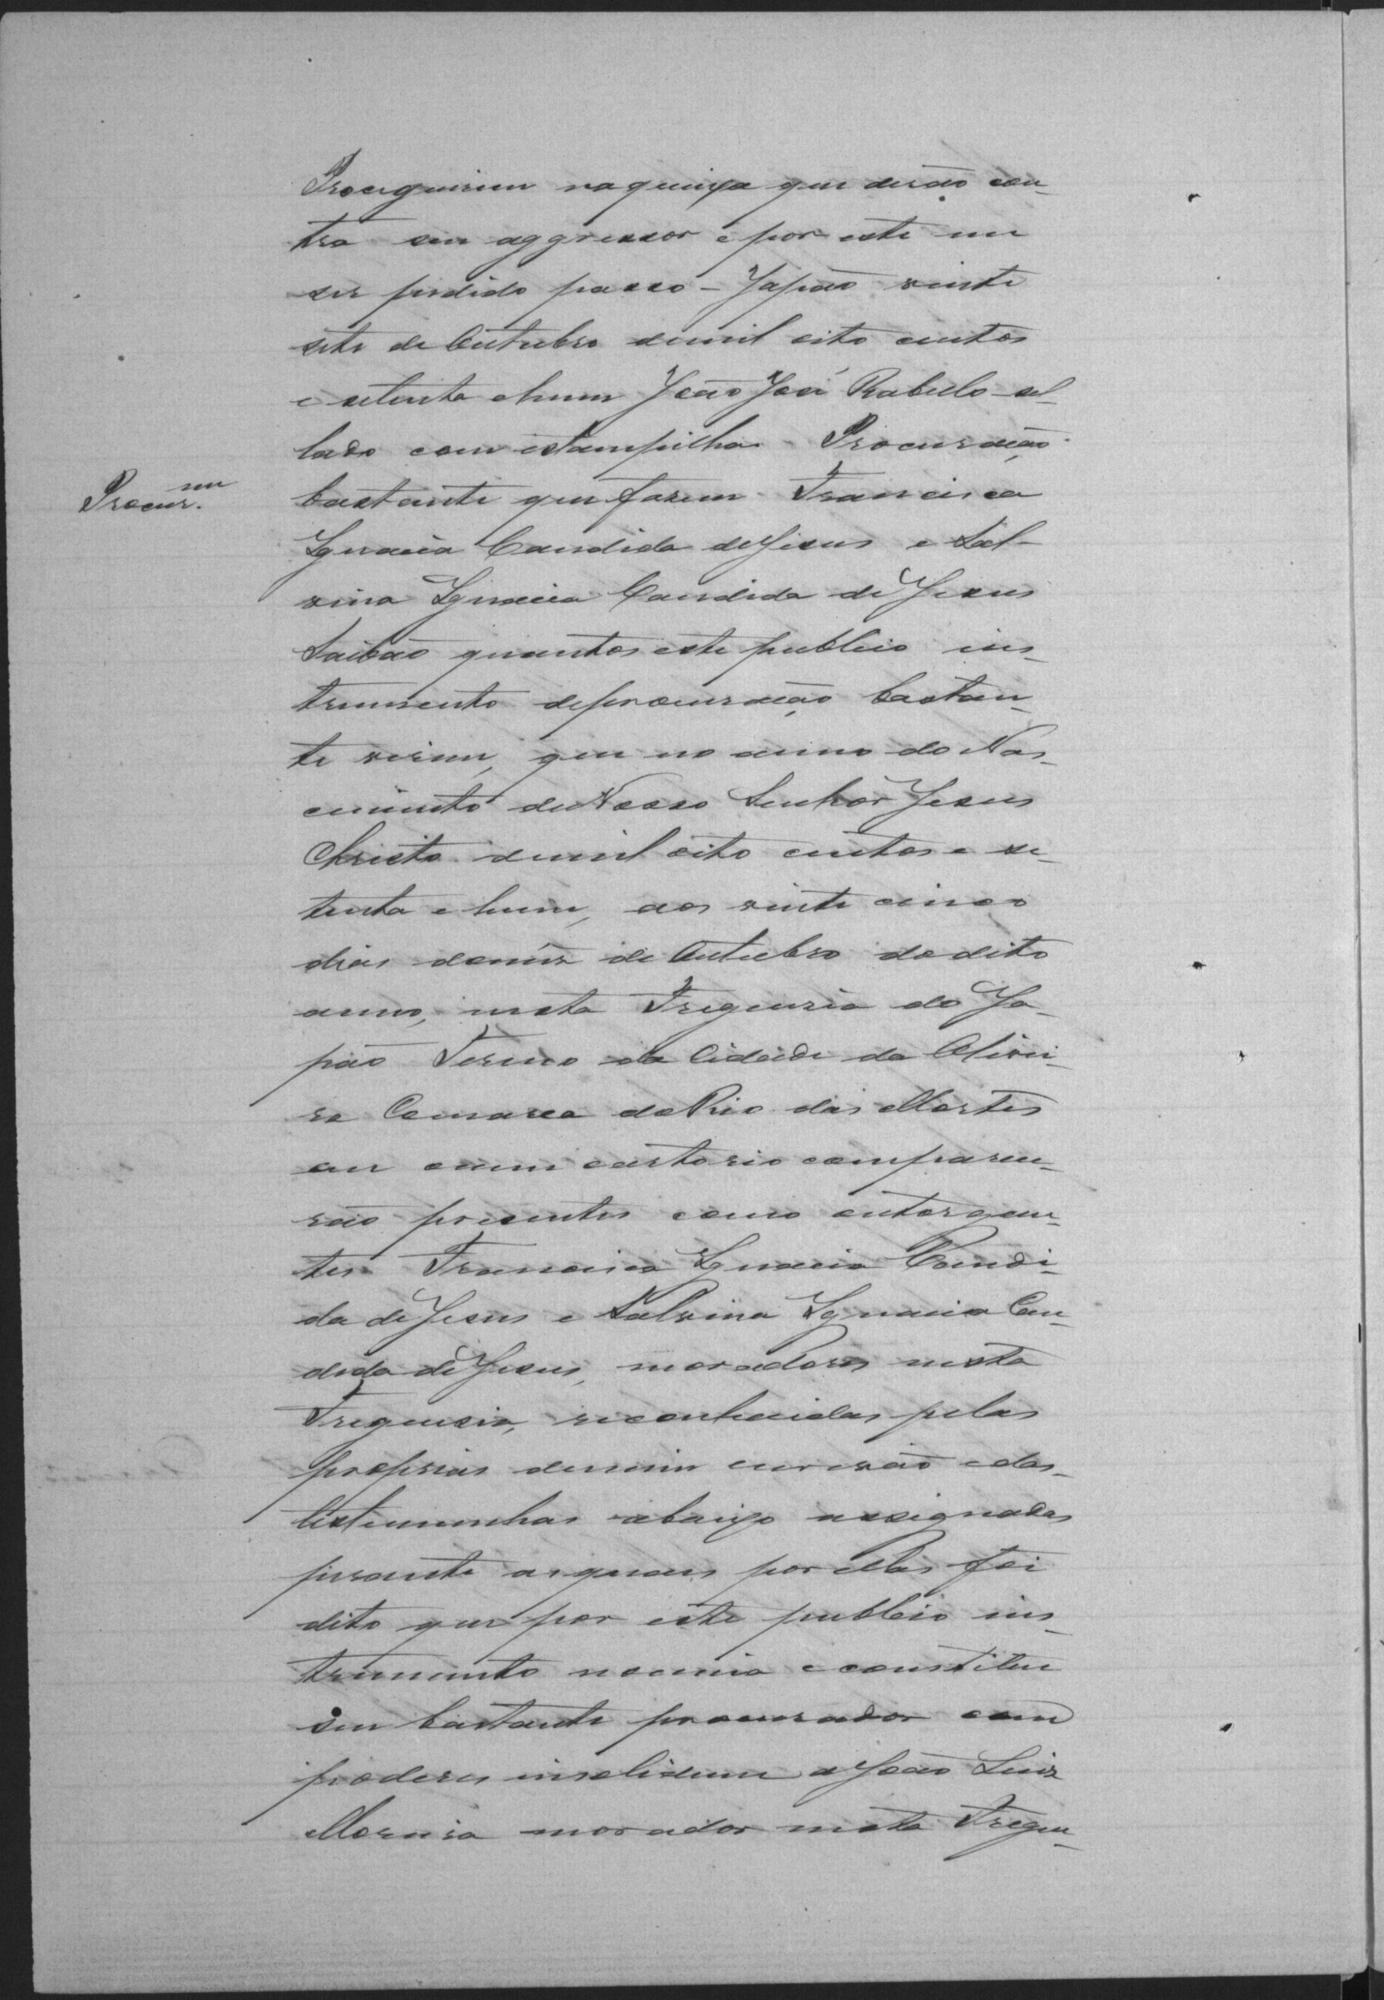 Proceguirem na queixa que derão con-
tra seu aggressor e por este me
ser pedido passo - Japão vinte
sete de Outubro de mil oito centos
e setenta e hum João José Rabello - sel-
lado com estampilha - Procuração
Procur.m
bastante que fasem Francisca
Ignacia Candida de Jesus e Sal-
vina Ignacia Candida de Jesus
Saibão quantos este publico ins-
trumento de procuração bastan-
te virem, que no anno do Nas-
cimento de Nosso Senhor Jesus
Christo de mil oito centos e se-
tenta e hum, aos vinte cinco
dias do mês de Outubro do dito
anno, nesta Freguesia do Ja-
pão Termo da Cidade da Olivei-
ra Comarca do Rio das Mortes
em o meu cartorio comparece-
rão presentes como outorgan-
tes Francisca Ignacia Candi-
da de Jesus e Salvina Ignacia Can-
dida de Jesus, moradoras nesta
Freguesia, reconhecidas pelas
proprias de mim escrivão e das
testemunhas abaixo assignadas
perante as quaes por ellas foi
dito que por este publico ins-
trumento nomeia e constitue
seu bastante procurador com
poderes insolidum a João Luiz
Moreira morador nesta Fregue-